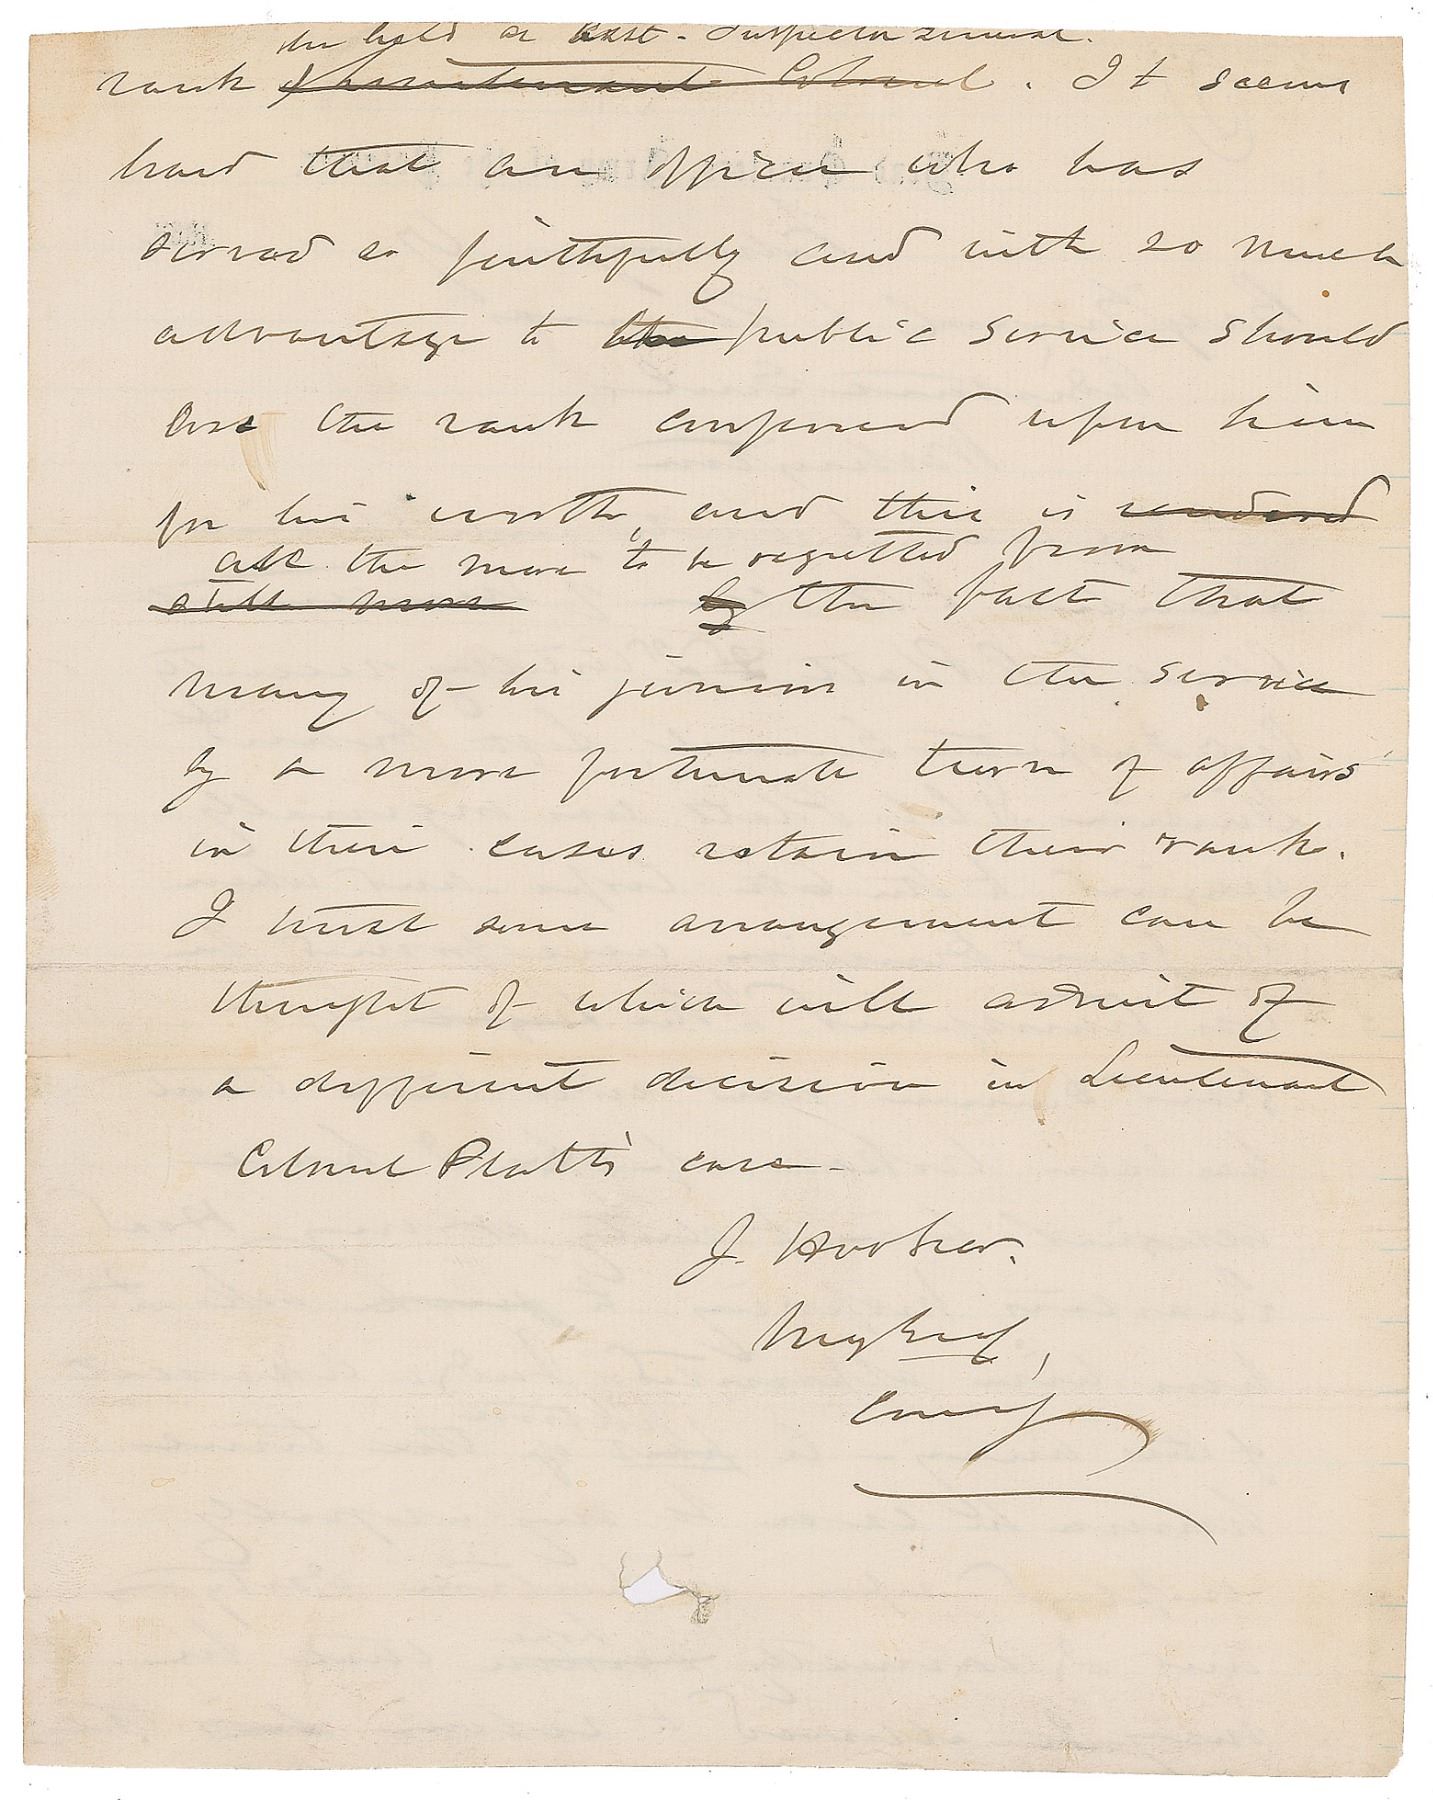 he held as Asst. Inspector General.
rank of Lieutenant Colonel. It seems
hard that an officer who has
served so faithfully and with so much
advantage to the public service should
lose the rank conferred upon him
for his worth, and this is rendered
all the more to be regretted from
still more by the fact that
many of his juniors in the service
by a more fortunate turn of affairs
in their cases retain their rank.
I trust some arrangement can be
thought of which will admit of
a different decision in Lieutenant
Colonel Platt's case.
J. Hooker.
Maj Genl,
Comg